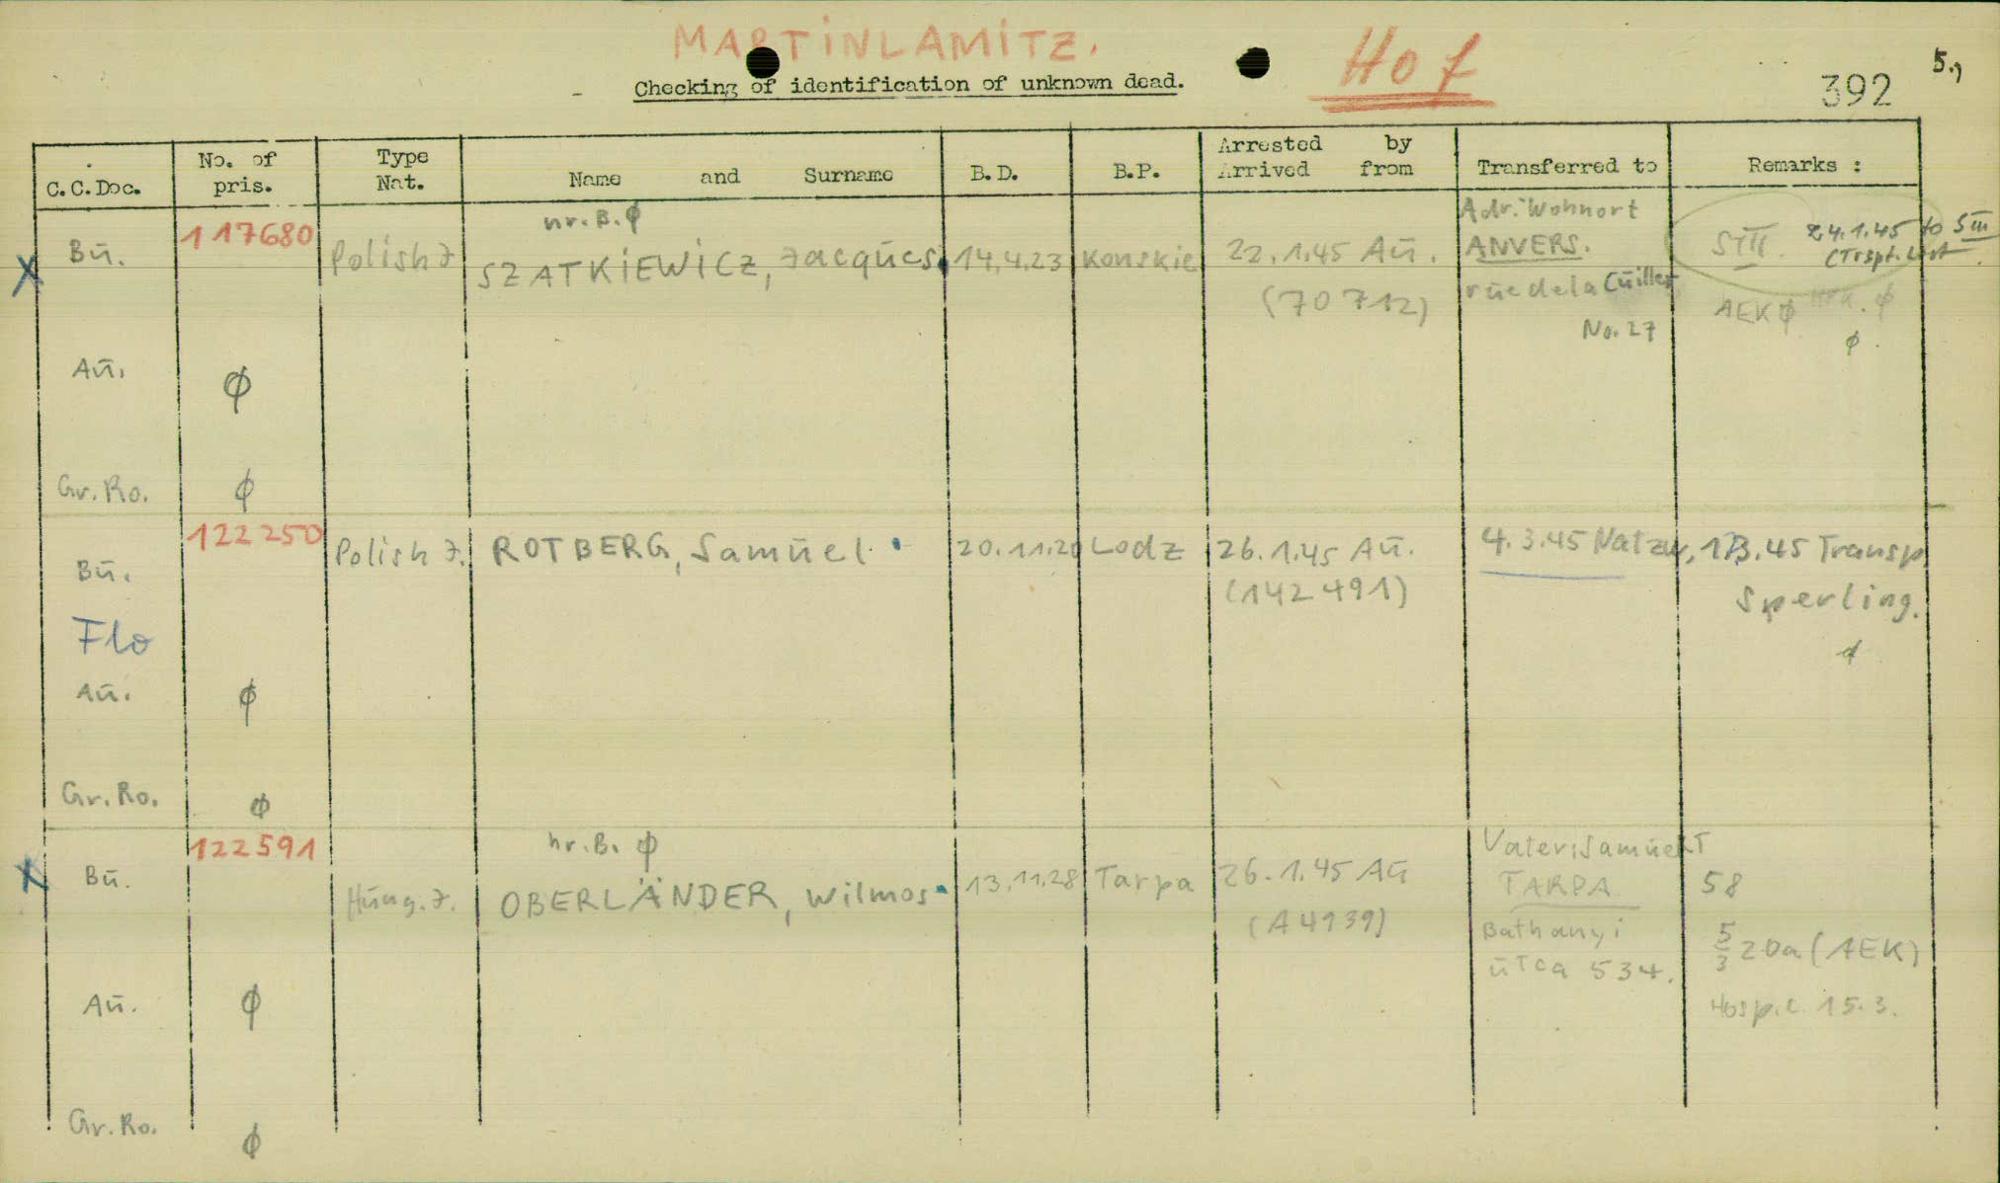 MARTINLAMITZ.
Hof
Checking of identification of unknown dead.
392
5.,
C.C.Doc.
No. of pris.
Type Nat.
Name and Surname
B.D.
B.P.
Arrested by
Arrived from
Transferred to
Remarks :
nr. B. ϕ
Adr. Wohnort
Bū. 117680 Polish J. SZATKIEWICZ, Jacques 14.4.23 Konskie 22.1.45 Aū. ANVERS. SIII. 24.1.45 to SIII
(Trspt. List
(70712) rūe de la Cūiller AEK ϕ ϕ
No. 27 ϕ.
Aū. ϕ
Gr. Ro. ϕ
122250
Bū. Polish J. ROTBERG, Samūel 20.11.20 Lodz 26.1.45 Aū. 4.3.45 Natzw, 13.45 Transp
(142491) Sperling.
Flo
Aū. ϕ
Gr. Ro. ϕ
122591 nr. B. ϕ Vater: Samūel T
Bū. Hūng. J. OBERLÄNDER, Wilmos 13.11.28 Tarpa 26.1.45 Aū TARPA 58
(A 4939) Bathanyi
ūtca 534. 5/3 20a (AEK)
Aū. ϕ Hosp. l. 15.3.
Gr. Ro. ϕ